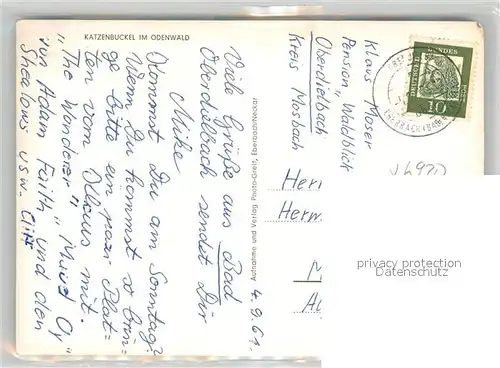 KATZENBUCKEL IM ODENWALD
4.9.61.
Viele Grüße aus Bad
Oberdielbach sendet Dir
Mike
Kommst Du am Sonntag?
Wenn Du kommst so brin=
ge bitte ein paar Plat=
ten vom Klaus mit.
"The Wanderer" "Mund Oy"
von Adam Faith und den
Shadows usw. Cliff
Aufnahme und Verlag Photo-Greif, Eberbach/Neckar
Klaus Moser
Pension "Waldblick"
Oberdielbach
Kreis Mosbach
Herr
Herm
DEUTSCHE BUNDESPOST
10
privacy protection
Datenschutz